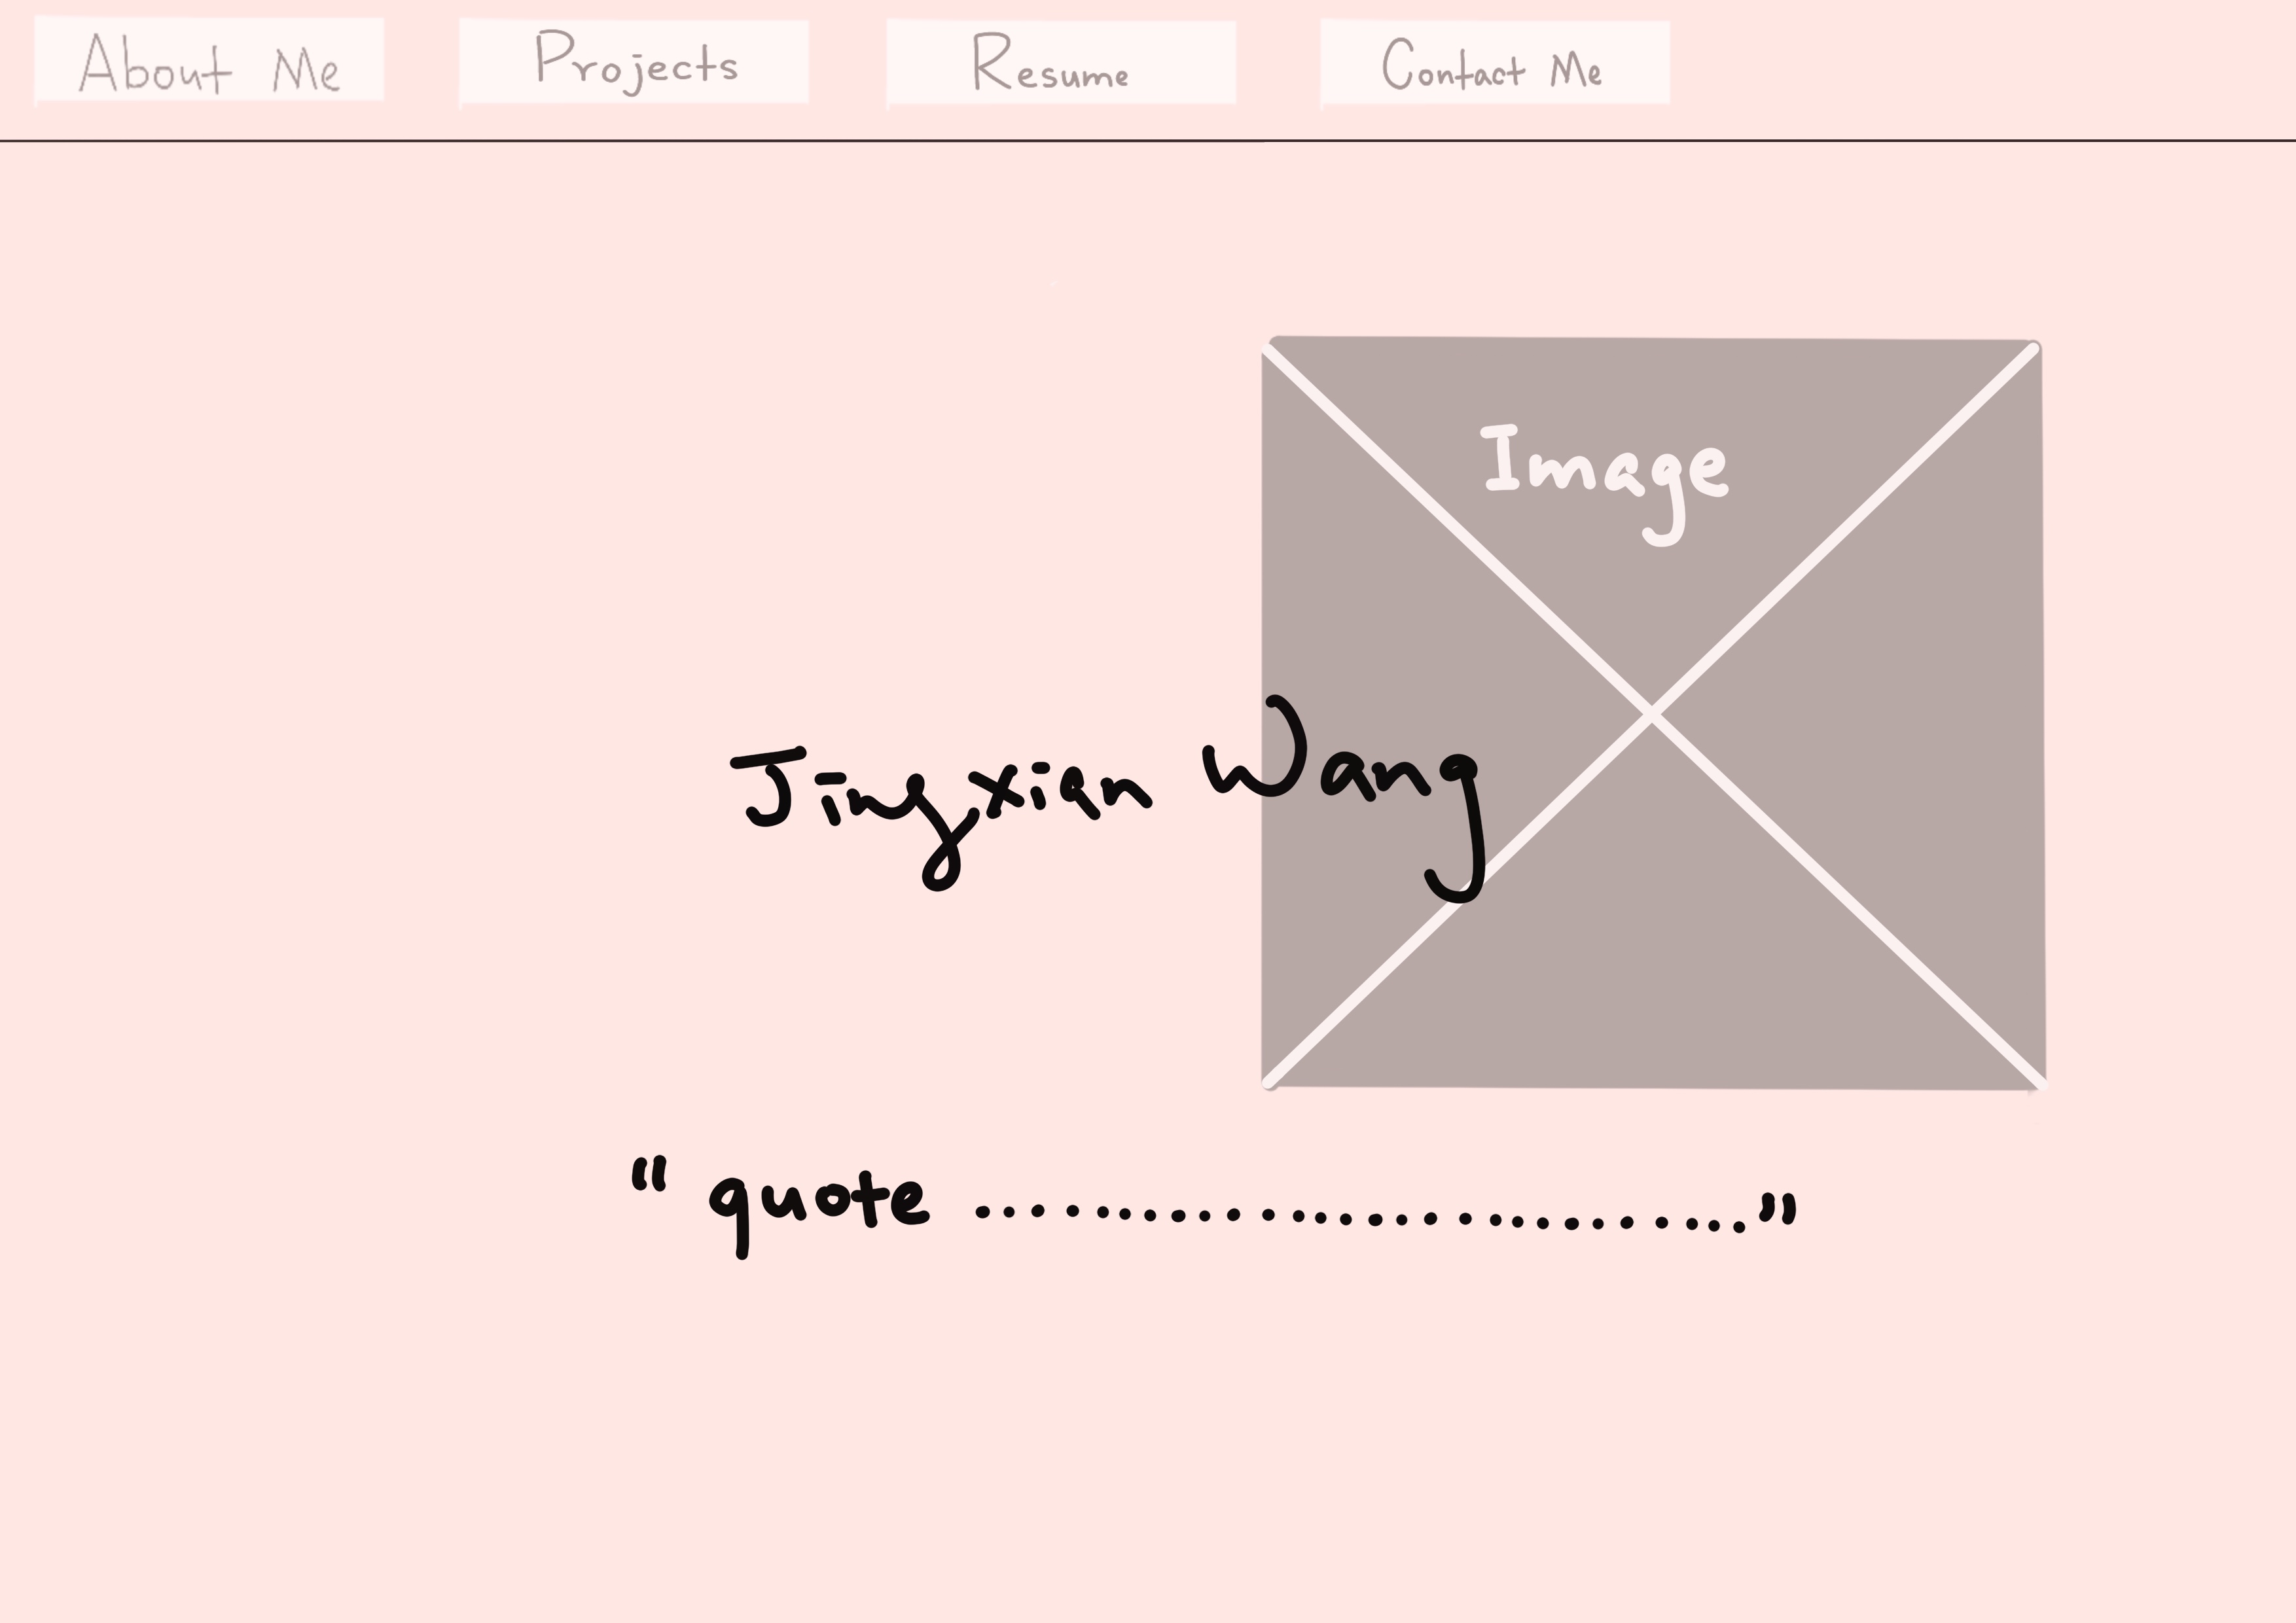 About Me Projects Resume Contact Me
Image
Jingxian Wang
“ quote .................................”